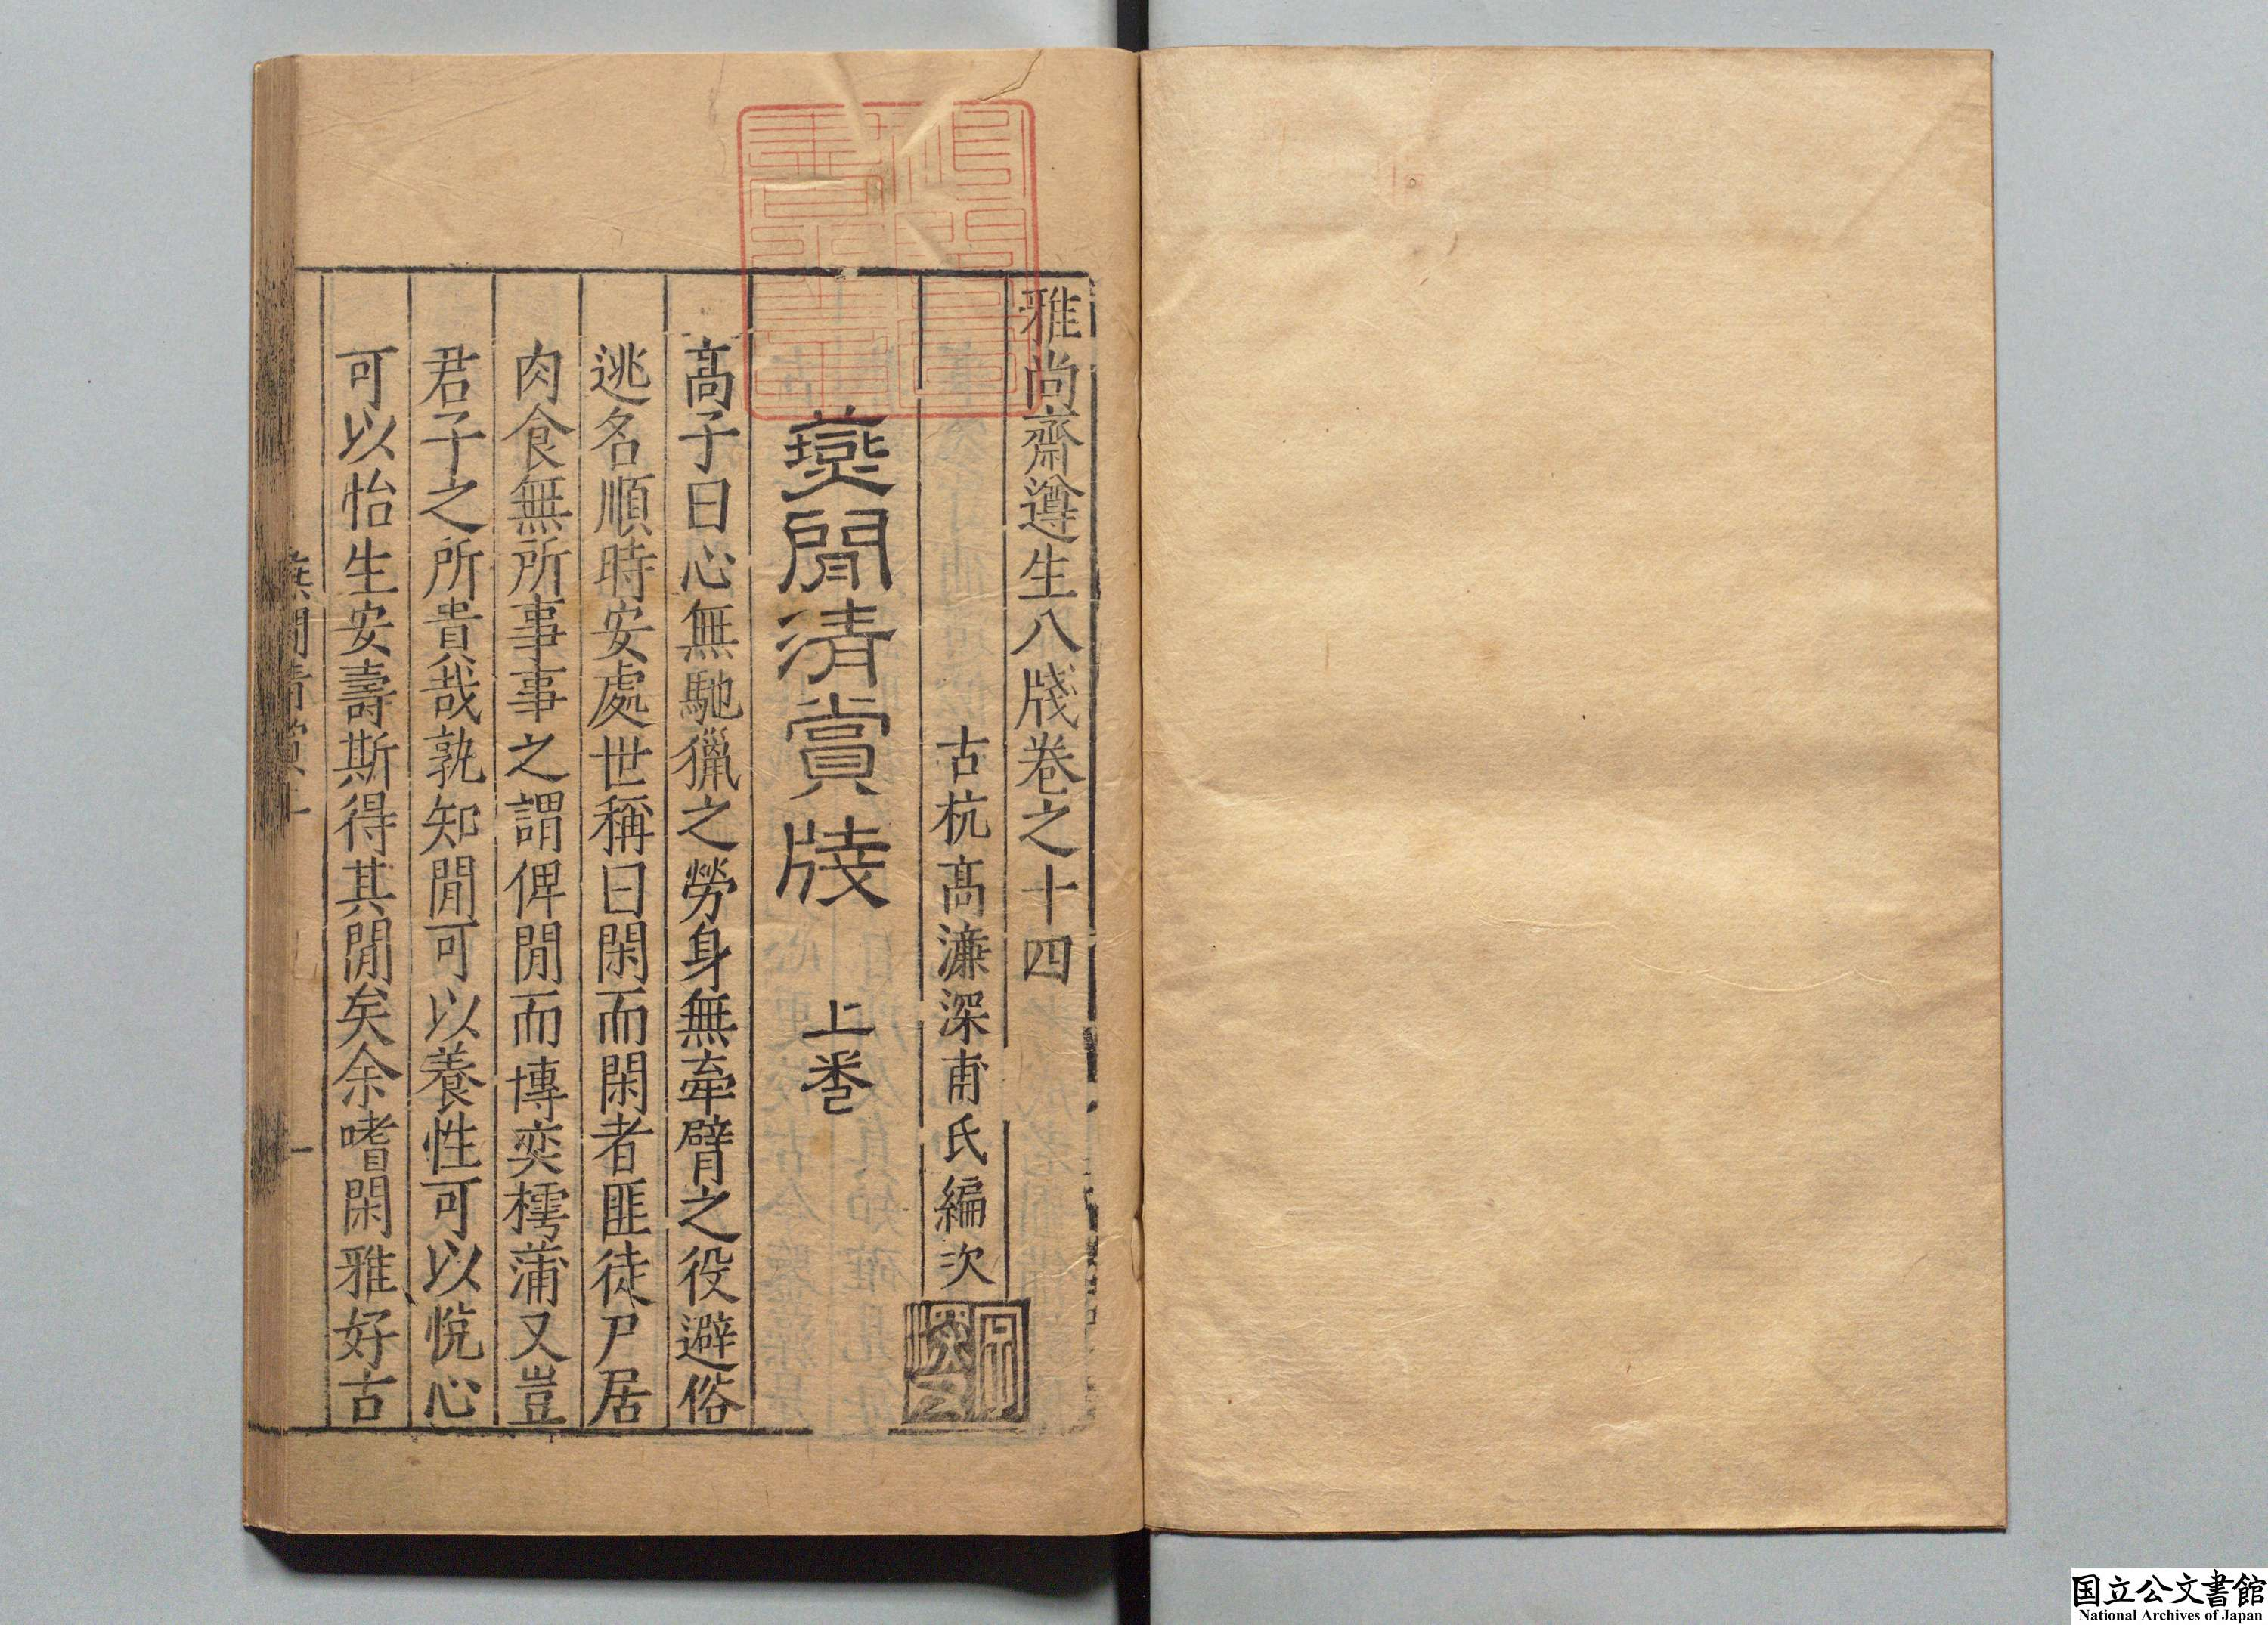 雅尚齋遵生八牋卷之十四
古杭髙濂深甫氏編次
燕閒清賞牋 上卷
髙子曰心無馳獵之勞身無牽臂之役避俗
逃名順時安處世稱曰閑而閑者匪徒尸居
肉食無所事事之謂俾閒而博奕樗蒲又豈
君子之所貴哉孰知閒可以養性可以悅心
可以怡生安壽斯得其閒矣余嗜閑雅好古
国立公文書館
National Archives of Japan